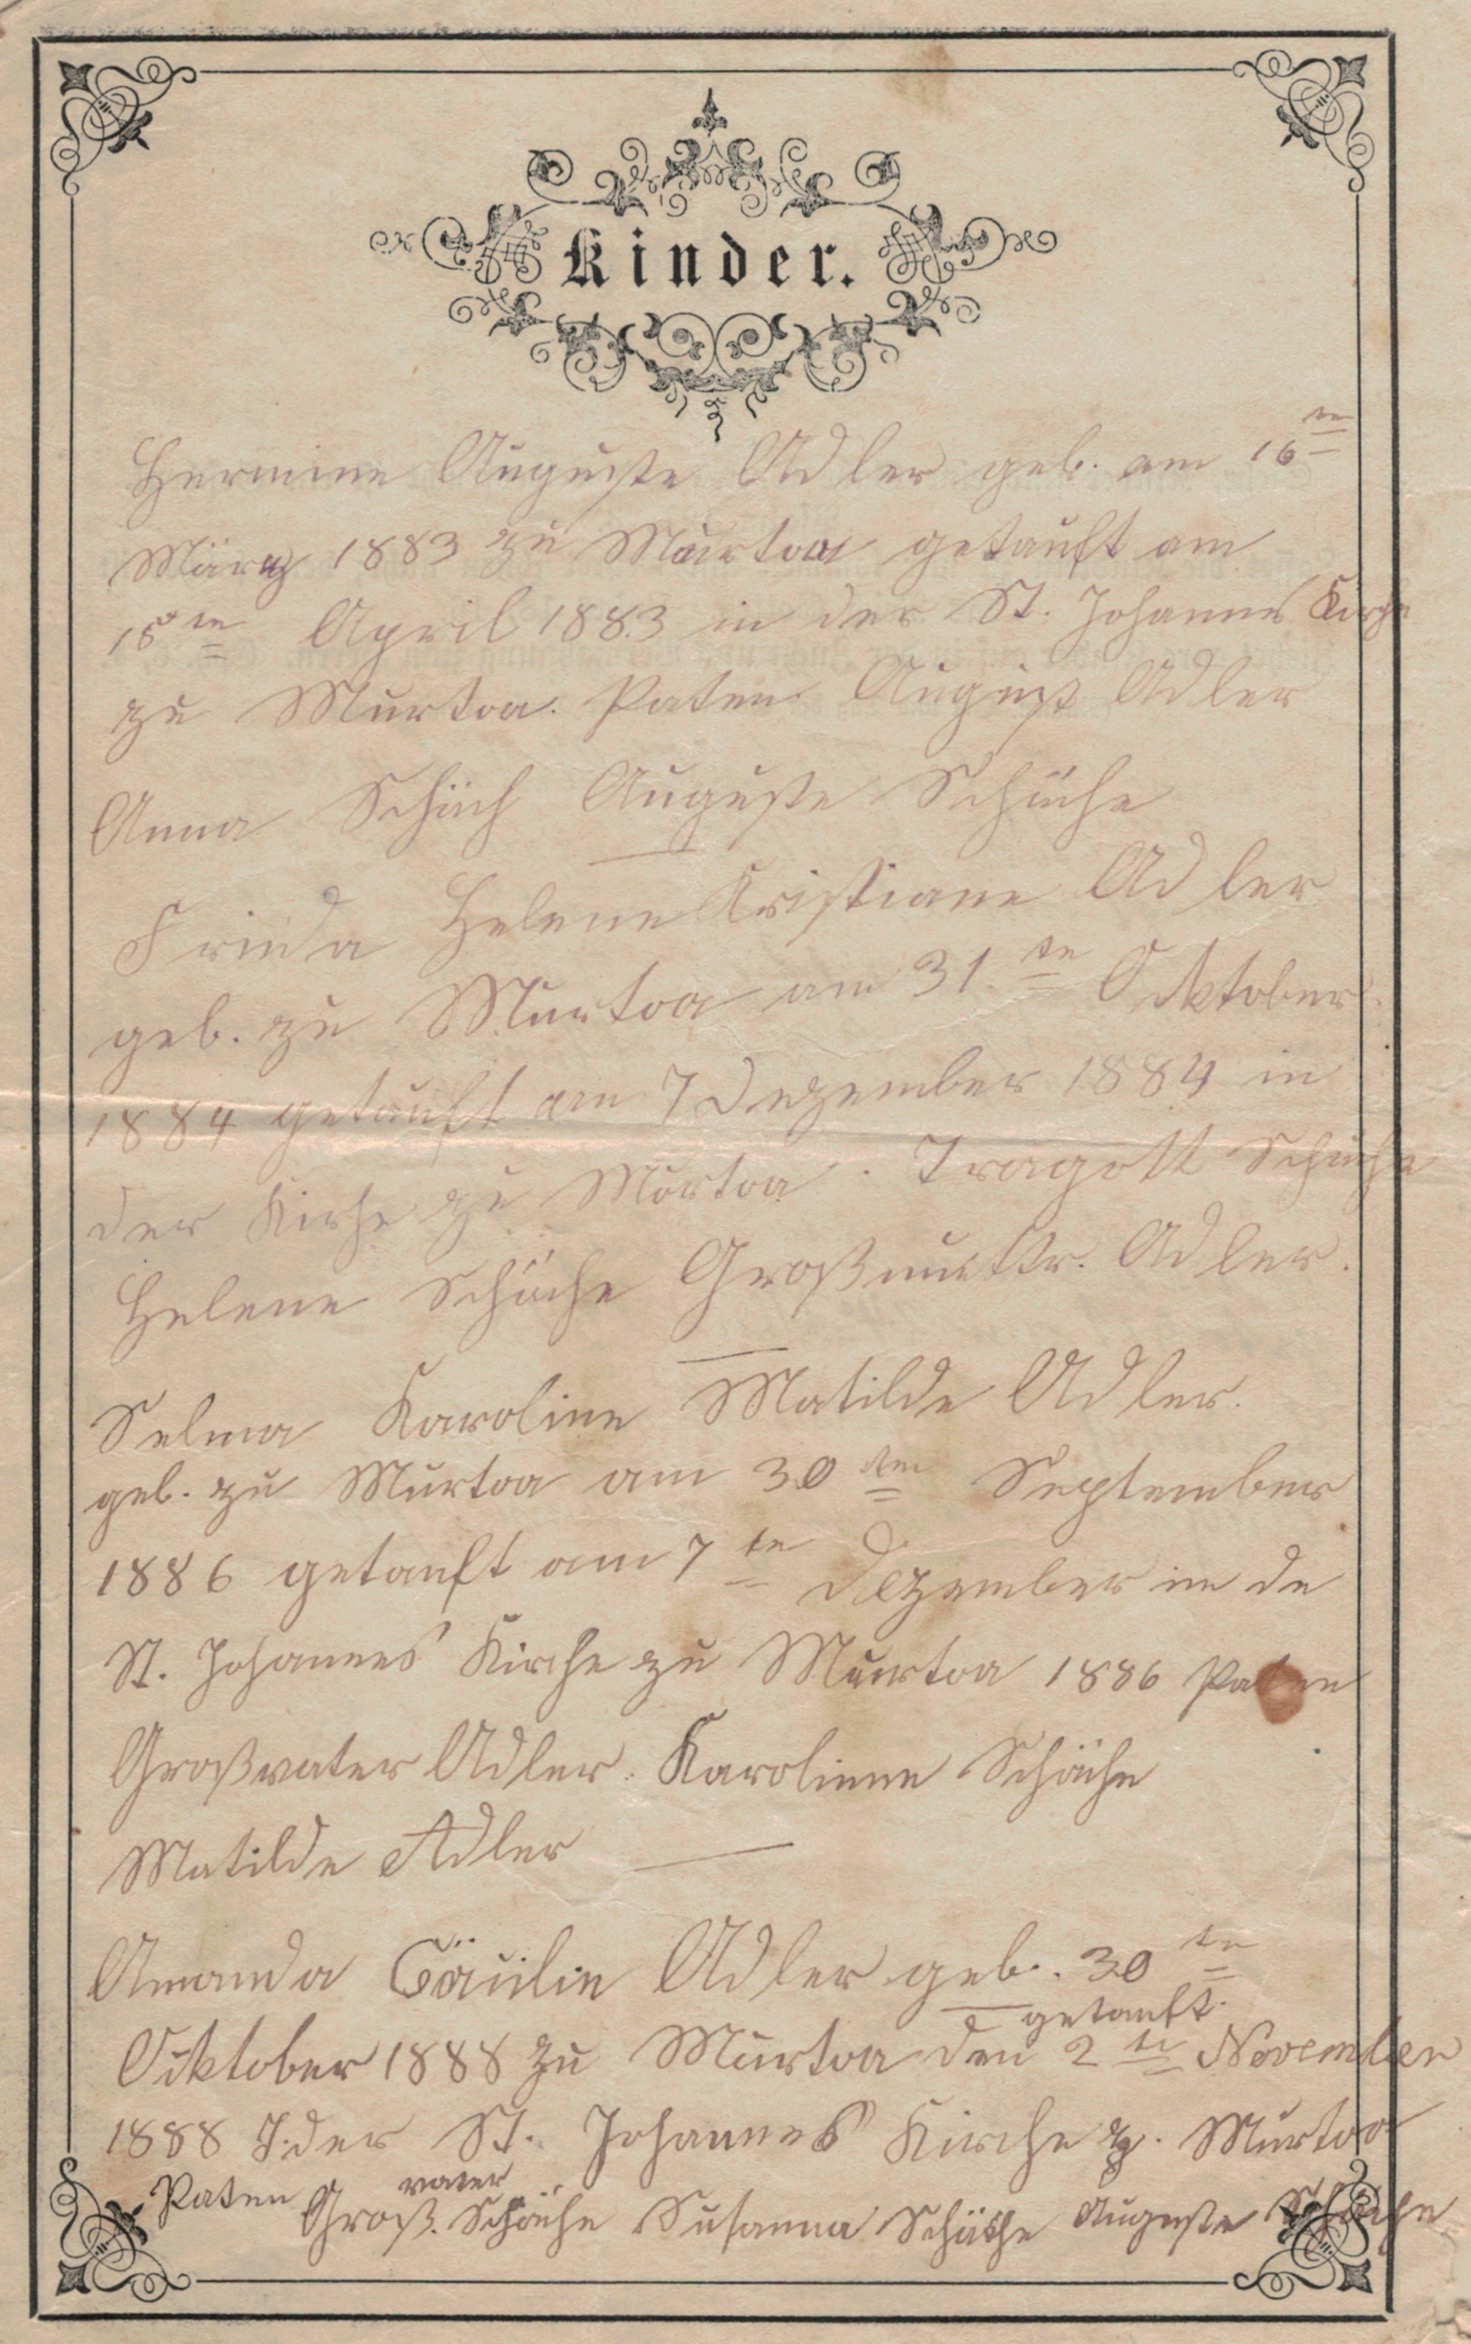 Kinder.
Hermine Auguste Adler geb. am 16ten
März 1883 zu Murtoa getauft am
15ten April 1883 in der St. Johannes Kirche
zu Murtoa. Paten August Adler
Anna Schäch Auguste Schäche
Frieda Helene Kristiane Adler
geb. zu Murtoa am 31.ten Oktober
1884 getauft am 7 Dezember 1884 in
der Kirche zu Murtoa. Tragott Schäche
Helene Schäche Großmuttr. Adler.
Selma Karoline Matilde Adler.
geb. zu Murtoa am 30ten September
1886 getauft am 7ten Dezember in de
St. Johannes Kirche zu Murtoa 1886 Paten
Großvater Adler. Karolinne Schäche
Matilde Adler
Amanda Adler geb. 30ten
getauft.
Oktober 1888 zu Murtoa den 2te November
1888 I. der St. Johannes Kirche z. Murtoa
Paten Groß.vater Schäche Susanna Schäche Auguste Schäche